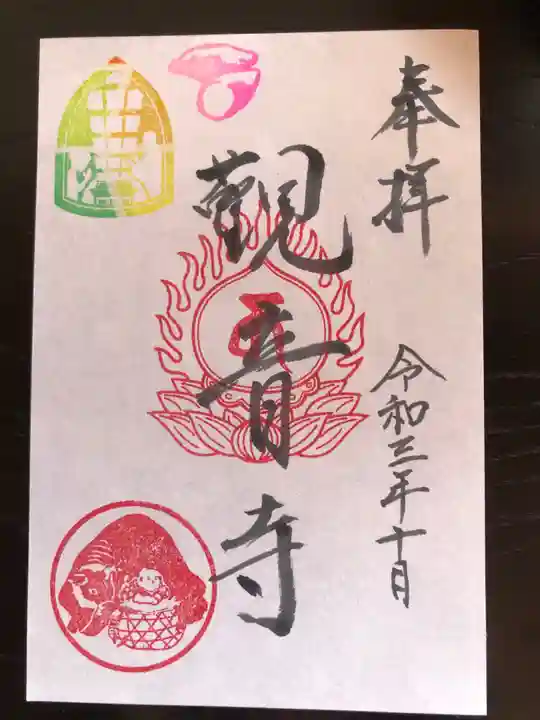 奉拝
令和三年十月
觀音寺